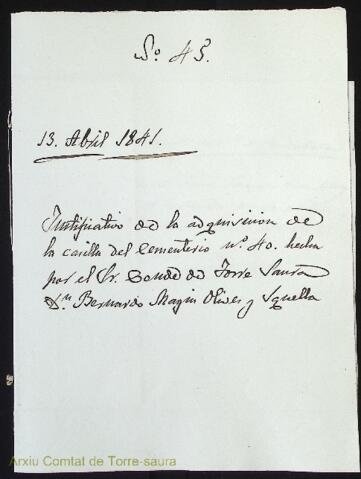 Nº 45.
13. Abril 1841.
Justificativo de la adquisicion de
la casilla del Cementerio nº 40. hecha
por el Sr. Conde de Torre Saura
Dn Bernardo Magin Olives y Squella
Arxiu Comtat de Torre-saura